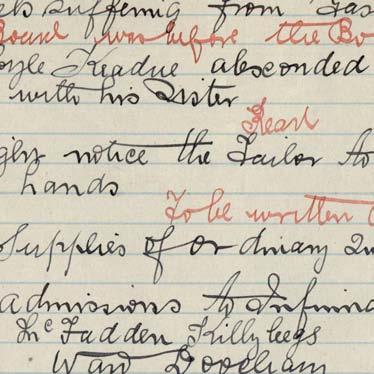 suffering from
Board was before the Bo
oyle Keadue absconded
with his Sister
Read
ght notice the Tailor to
hands
To be written
Supplies of Ordinary
admissions to Infirma
McFadden Killybegs
Ward